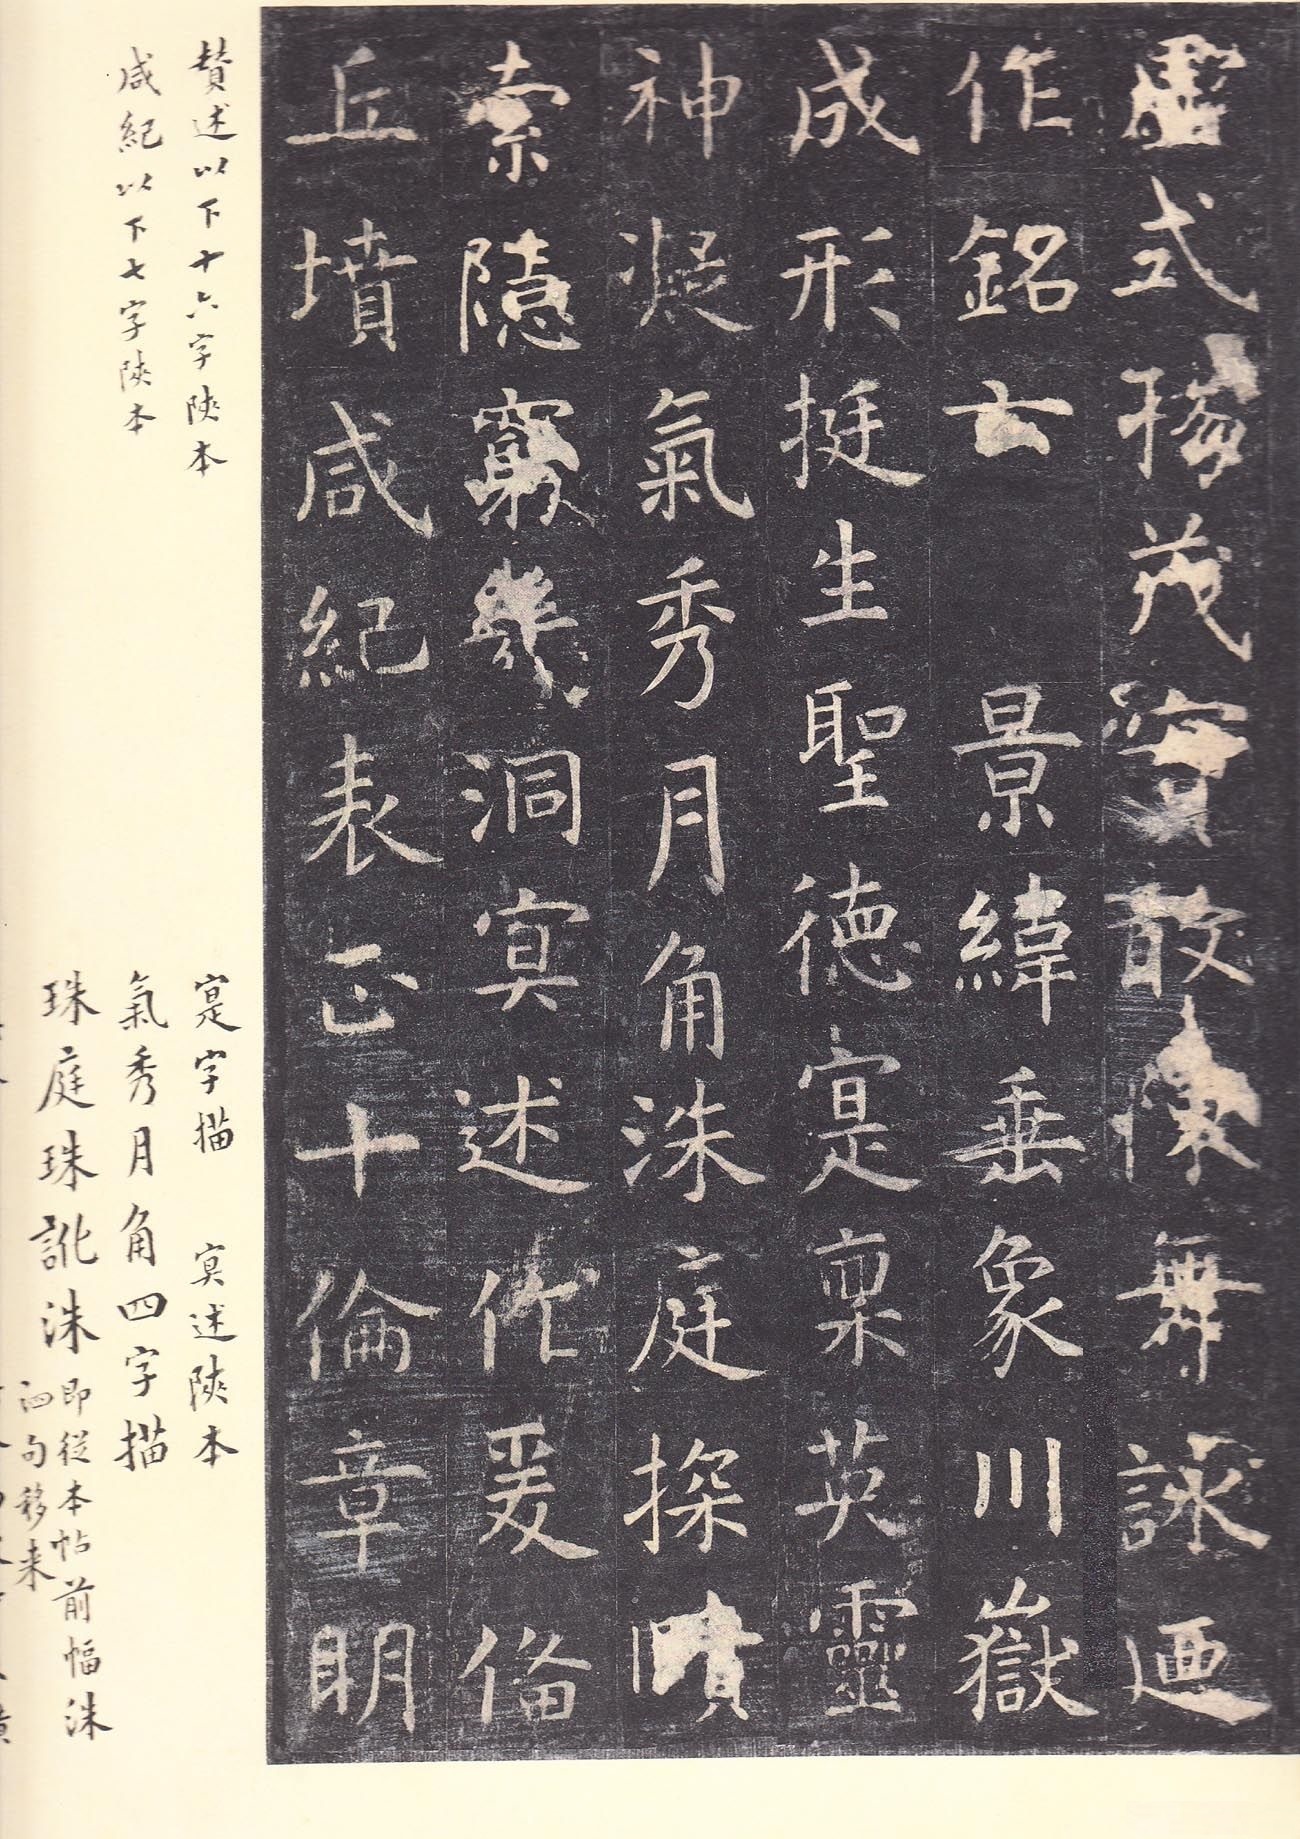 虛式揚茂實敢陳舞詠迺
作銘云 景緯垂象川嶽
成形挺生聖德寔稟英靈
神凝氣秀月角洙庭探賾
索隱窮幾洞冥述作爰俻
丘墳咸紀表正十倫章明
賛述以下十六字陝本
寔字描 冥述陝本
咸紀以下七字陝本
氣秀月角四字描
珠庭珠訛洙
即從本帖前幅洙
泗句移来